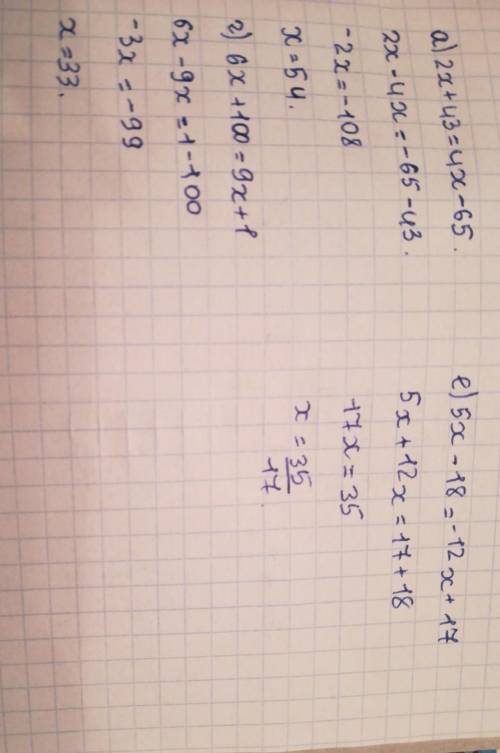 а) 2x+43=4x-65.
2x-4x=-65-43.
-2x=-108
x=54.
г) 6x+100=9x+1
6x-9x=1-100
-3x=-99
x=33.
е) 5x-18=-12x+17
5x+12x=17+18
17x=35
x=35/17